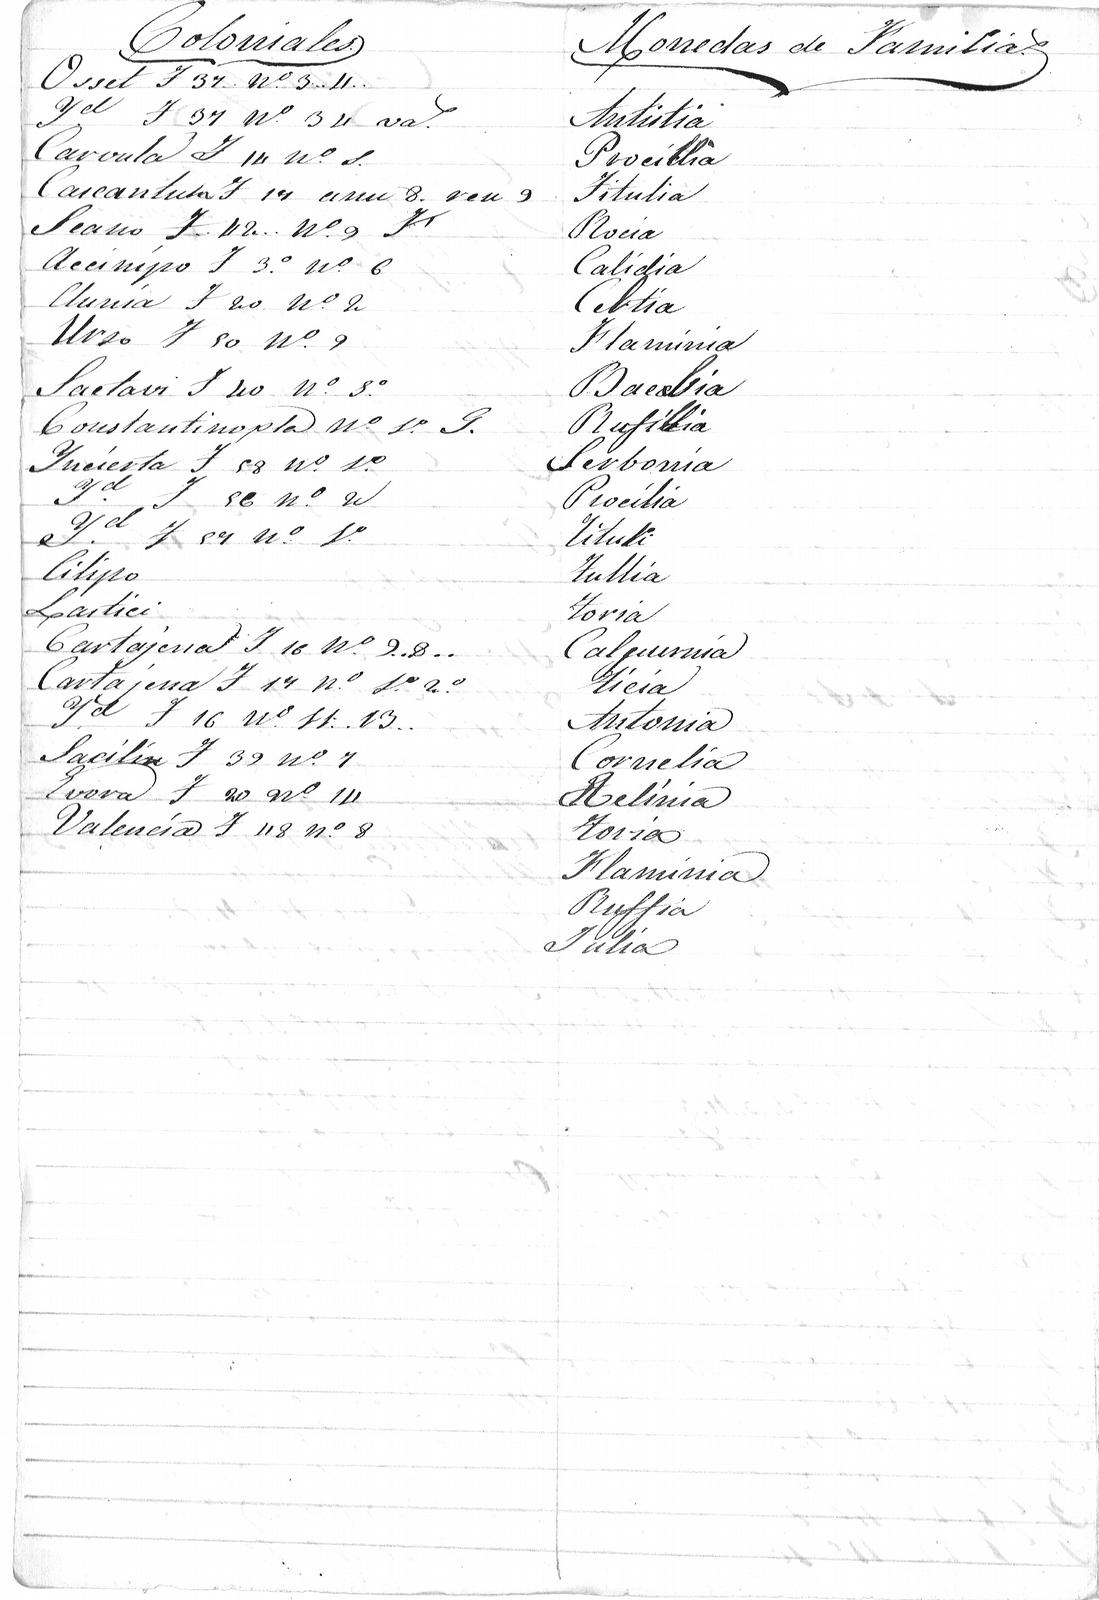 Coloniales
Osset T 37.. nº 3..4..
Yd T 37 nº 3 4 va.
Carvula T 14 nº 1.
Cascantum T 17 anv 8. rev 9
Searo T.. 42.. nº 9
Accinipo T 3.º nº 6
Clunia T 20 nº 2
Urso T 50 nº 9
Saetavi T 40 nº 5º
Constantinopla nº 1º G.
Yncierta T 58 nº 1º
Yd T 56 nº 2
Yd T 57 nº 1º
Cilipo
Lastici
Cartajena T 16 nº 2..8..
Cartajena T 17 nº 1º 2º
Yd T 16 nº 11..13..
Sacilin T 39 nº 7
Evora T 20 nº 14
Valencia T 48 nº 8
Monedas de Familias
Antistia
Procillia
Titulia
Rocia
Calidia
Celtia
Flaminia
Baebia
Rufillia
Serbonia
Procilia
Tituli
Tullia
Toria
Calpurnia
Licia
Antonia
Cornelia
Aelinia
Toria
Flaminia
Ruffia
Julia